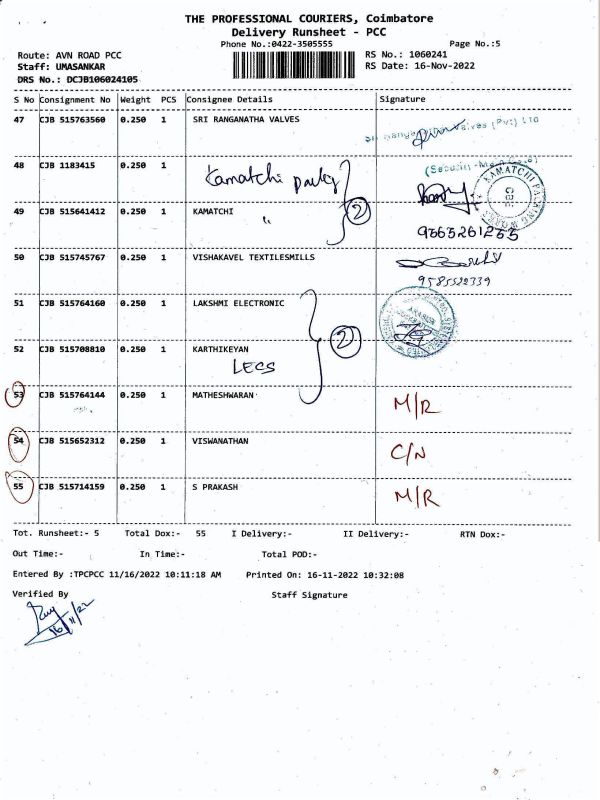 THE PROFESSIONAL COURIERS, Coimbatore
Delivery Runsheet - PCC
Phone No.:0422-3505555
Page No.:5
Route: AVN ROAD PCC
RS No.: 1060241
Staff: UMASANKAR
RS Date: 16-Nov-2022
DRS No.: DCJB106024105
S No Consignment No Weight PCS Consignee Details Signature
47 CJB 515763560 0.250 1 SRI RANGANATHA VALVES
48 CJB 1183415 0.250 1 Kamatchi
KAMATCHI PACKING WORKS
CBE
49 CJB 515641412 0.250 1 KAMATCHI
" 2
50 CJB 515745767 0.250 1 VISHAKAVEL TEXTILESMILLS
9585522339
51 CJB 515764160 0.250 1 LAKSHMI ELECTRONIC
2
52 CJB 515708810 0.250 1 KARTHIKEYAN
LECS
53 CJB 515764144 0.250 1 MATHESHWARAN M/R
54 CJB 515652312 0.250 1 VISWANATHAN C/N
55 CJB 515714159 0.250 1 S PRAKASH M/R
Tot. Runsheet:- 5 Total Dox:- 55 I Delivery:- II Delivery:- RTN Dox:-
Out Time:- In Time:- Total POD:-
Entered By :TPCPCC 11/16/2022 10:11:18 AM Printed On: 16-11-2022 10:32:08
Verified By Staff Signature
16/11/22